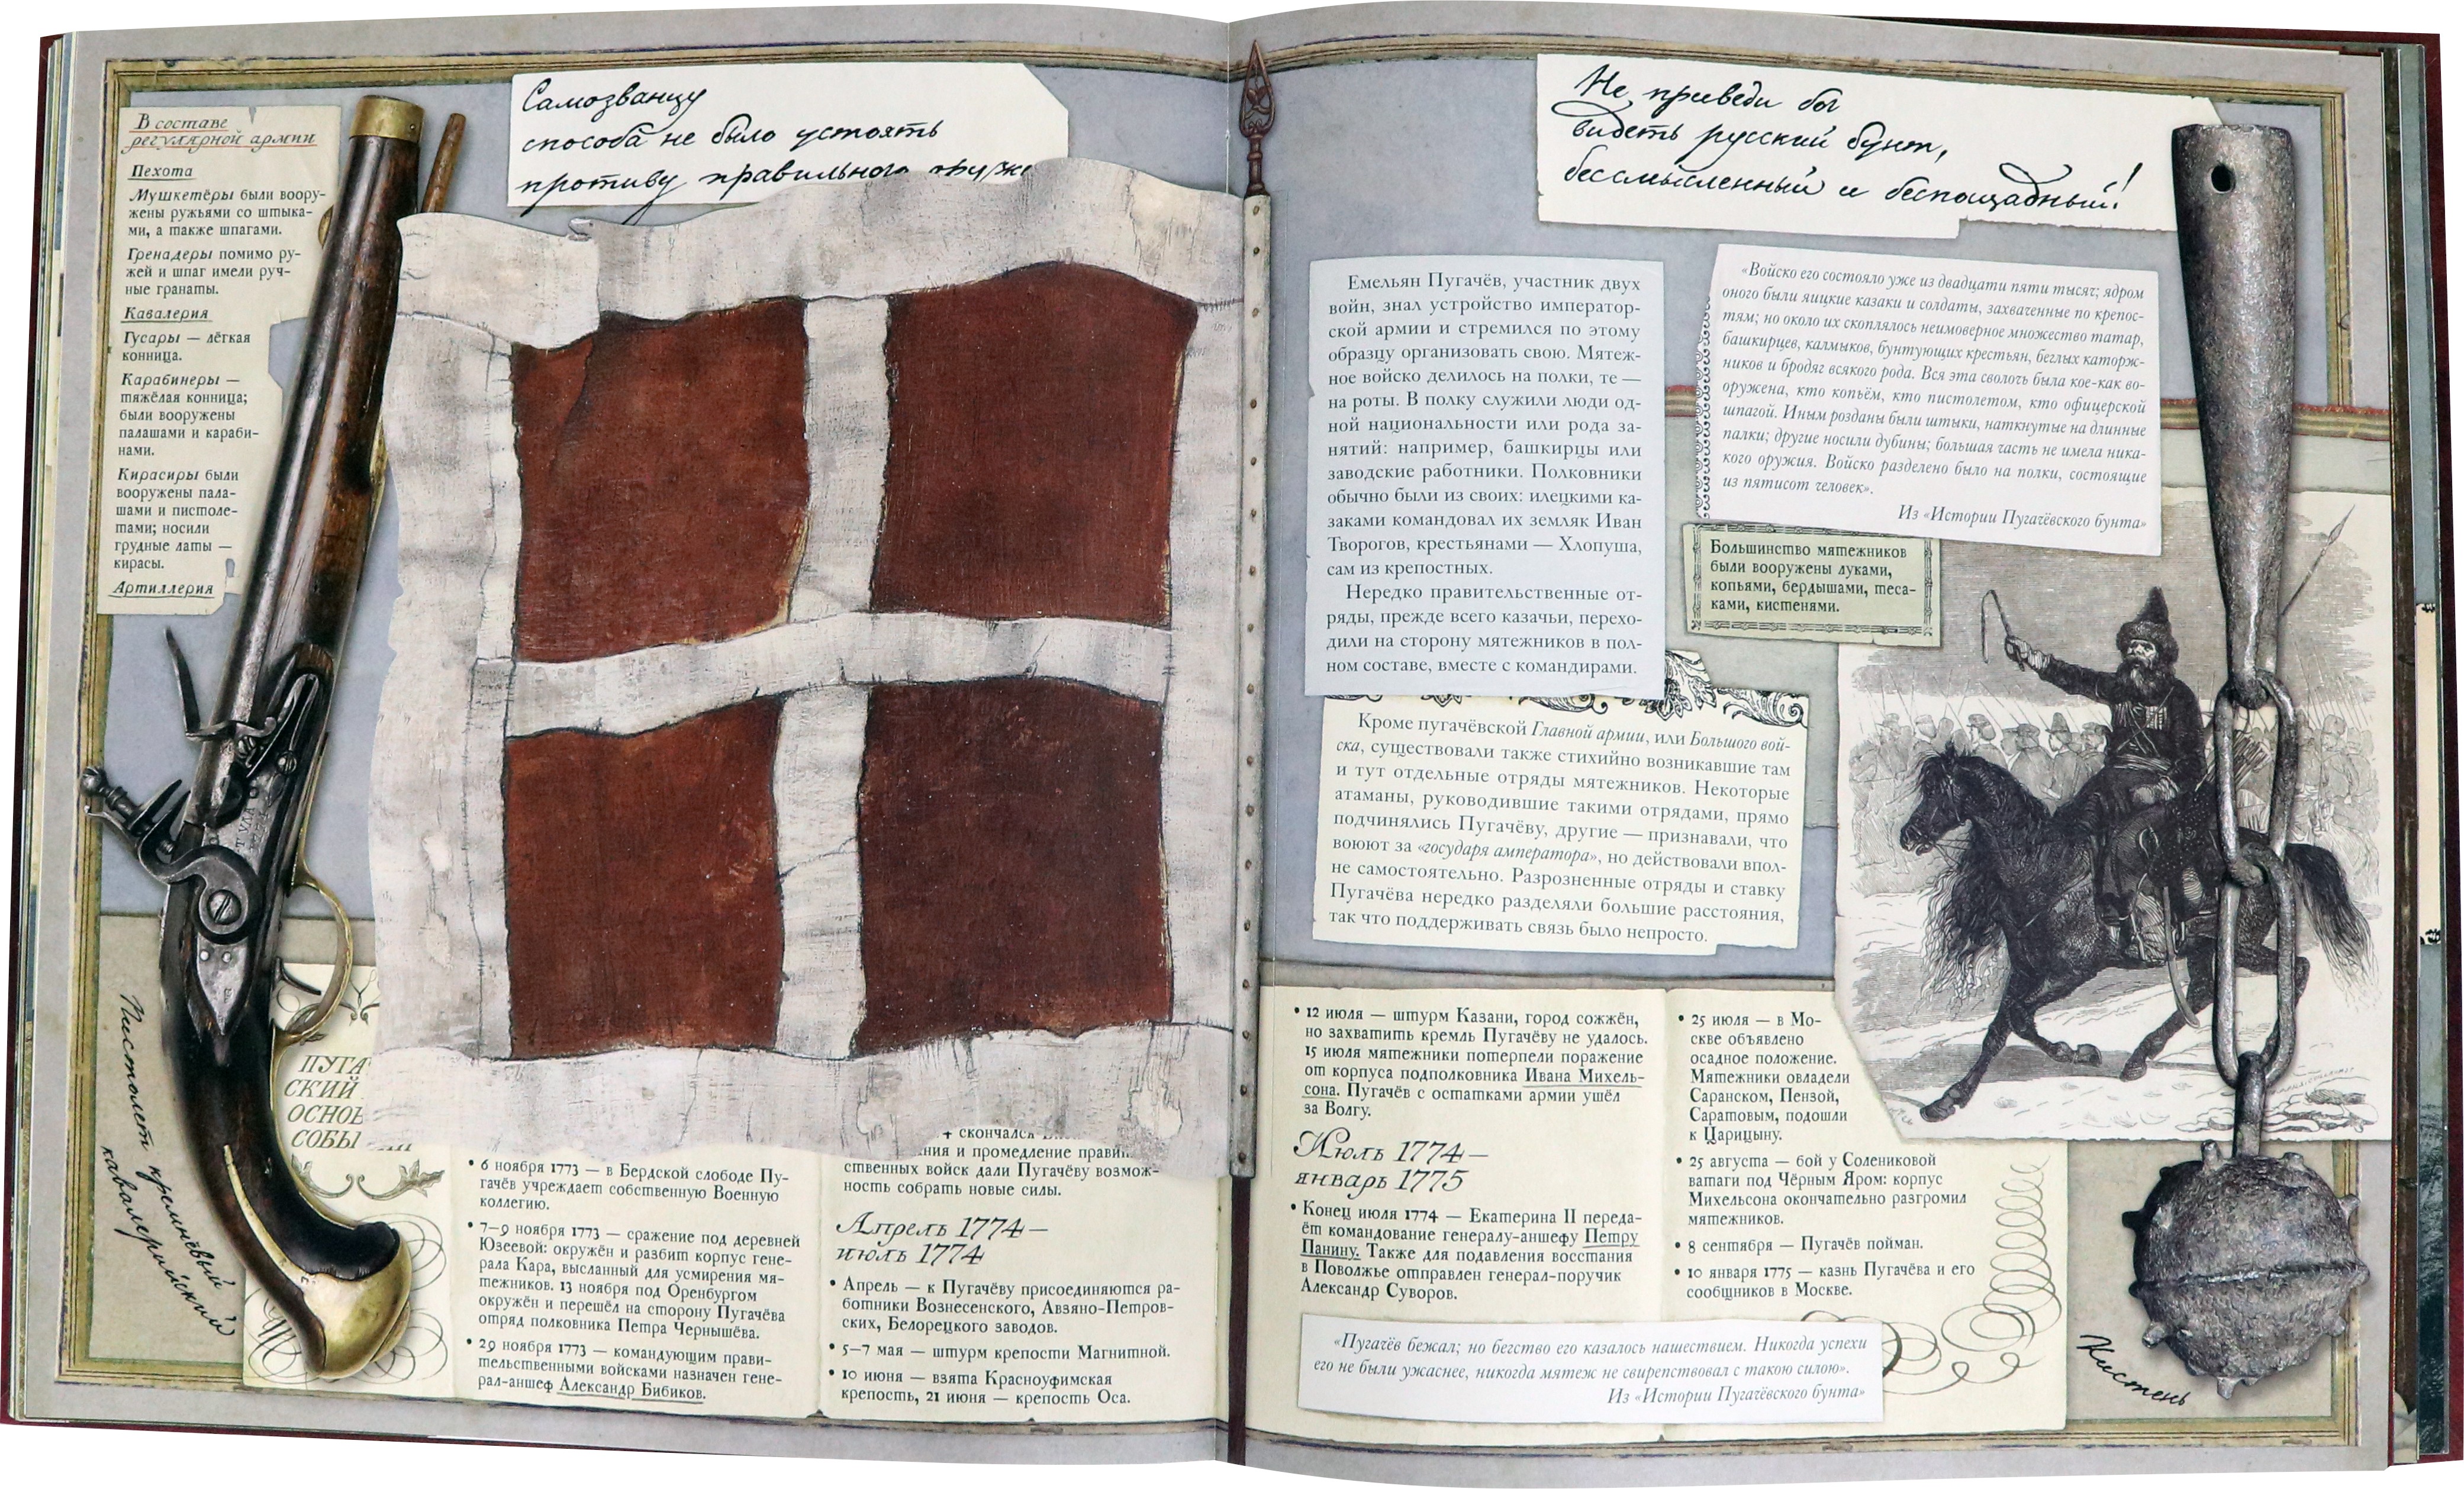 В составе
регулярной армии
Пехота
Мушкетёры были воору-
жены ружьями со штыка-
ми, а также шпагами.
Гренадеры помимо ру-
жей и шпаг имели руч-
ные гранаты.
Кавалерия
Гусары — лёгкая
конница.
Карабинеры —
тяжёлая конница;
были вооружены
палашами и караби-
нами.
Кирасиры были
вооружены пала-
шами и пистоле-
тами; носили
грудные латы —
кирасы.
Артиллерия
Самозванцу
способа не было устоять
противу правильного
ТУЛА
Пистолет кремнёвый
кавалерийский
ПУГА
СКИЙ
ОСНОВ
СОБЫ
• 6 ноября 1773 — в Бердской слободе Пу-
гачёв учреждает собственную Военную
коллегию.
• 7–9 ноября 1773 — сражение под деревней
Юзеевой: окружён и разбит корпус гене-
рала Кара, высланный для усмирения мя-
тежников. 13 ноября под Оренбургом
окружён и перешёл на сторону Пугачёва
отряд полковника Петра Чернышёва.
• 29 ноября 1773 — командующим прави-
тельственными войсками назначен гене-
рал-аншеф Александр Бибиков.
скончался
ния и промедление правит
ственных войск дали Пугачёву возмож-
ность собрать новые силы.
Апрель 1774 —
июль 1774
• Апрель — к Пугачёву присоединяются ра-
ботники Вознесенского, Авзяно-Петров-
ских, Белорецкого заводов.
• 5–7 мая — штурм крепости Магнитной.
• 10 июня — взята Красноуфимская
крепость, 21 июня — крепость Оса.
Не приведи бог
видеть русский бунт,
бессмысленный и беспощадный!
Емельян Пугачёв, участник двух
войн, знал устройство император-
ской армии и стремился по этому
образцу организовать свою. Мятеж-
ное войско делилось на полки, те —
на роты. В полку служили люди од-
ной национальности или рода за-
нятий: например, башкирцы или
заводские работники. Полковники
обычно были из своих: илецкими ка-
заками командовал их земляк Иван
Творогов, крестьянами — Хлопуша,
сам из крепостных.
Нередко правительственные от-
ряды, прежде всего казачьи, перехо-
дили на сторону мятежников в пол-
ном составе, вместе с командирами.
«Войско его состояло уже из двадцати пяти тысяч; ядром
оного были яицкие казаки и солдаты, захваченные по крепос-
тям; но около их скоплялось неимоверное множество татар,
башкирцев, калмыков, бунтующих крестьян, беглых каторж-
ников и бродяг всякого рода. Вся эта сволочь была кое-как во-
оружена, кто копьём, кто пистолетом, кто офицерской
шпагой. Иным розданы были штыки, наткнутые на длинные
палки; другие носили дубины; большая часть не имела ника-
кого оружия. Войско разделено было на полки, состоящие
из пятисот человек».
Из «Истории Пугачёвского бунта»
Большинство мятежников
были вооружены луками,
копьями, бердышами, теса-
ками, кистенями.
Кроме пугачёвской Главной армии, или Большого вой-
ска, существовали также стихийно возникавшие там
и тут отдельные отряды мятежников. Некоторые
атаманы, руководившие такими отрядами, прямо
подчинялись Пугачёву, другие — признавали, что
воюют за «государя амператора», но действовали впол-
не самостоятельно. Разрозненные отряды и ставку
Пугачёва нередко разделяли большие расстояния,
так что поддерживать связь было непросто.
• 12 июля — штурм Казани, город сожжён,
но захватить кремль Пугачёву не удалось.
15 июля мятежники потерпели поражение
от корпуса подполковника Ивана Михель-
сона. Пугачёв с остатками армии ушёл
за Волгу.
Июль 1774 —
январь 1775
• Конец июля 1774 — Екатерина II переда-
ёт командование генералу-аншефу Петру
Панину. Также для подавления восстания
в Поволжье отправлен генерал-поручик
Александр Суворов.
• 25 июля — в Мо-
скве объявлено
осадное положение.
Мятежники овладели
Саранском, Пензой,
Саратовым, подошли
к Царицыну.
• 25 августа — бой у Солениковой
ватаги под Чёрным Яром: корпус
Михельсона окончательно разгромил
мятежников.
• 8 сентября — Пугачёв пойман.
• 10 января 1775 — казнь Пугачёва и его
сообщников в Москве.
«Пугачёв бежал; но бегство его казалось нашествием. Никогда успехи
его не были ужаснее, никогда мятеж не свирепствовал с такою силою».
Из «Истории Пугачёвского бунта»
Кистень